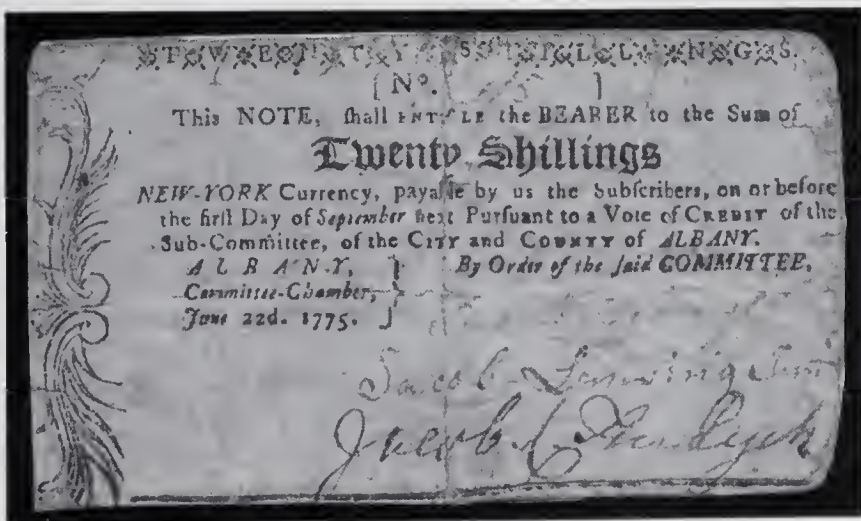 TWENTY SHILLINGS.
[ No. ]
This NOTE, ſhall ENTITLE the BEARER to the Sum of
Twenty Shillings
NEW-YORK Currency, payable by us the Subſcribers, on or before
the firſt Day of September next Purſuant to a Vote of CREDIT of the
Sub-Committee, of the CITY and COUNTY of ALBANY.
ALBANY, } By Order of the ſaid COMMITTEE,
Committee-Chamber,
June 22d. 1775.
Jacob Lansing Jun
Jacob C.